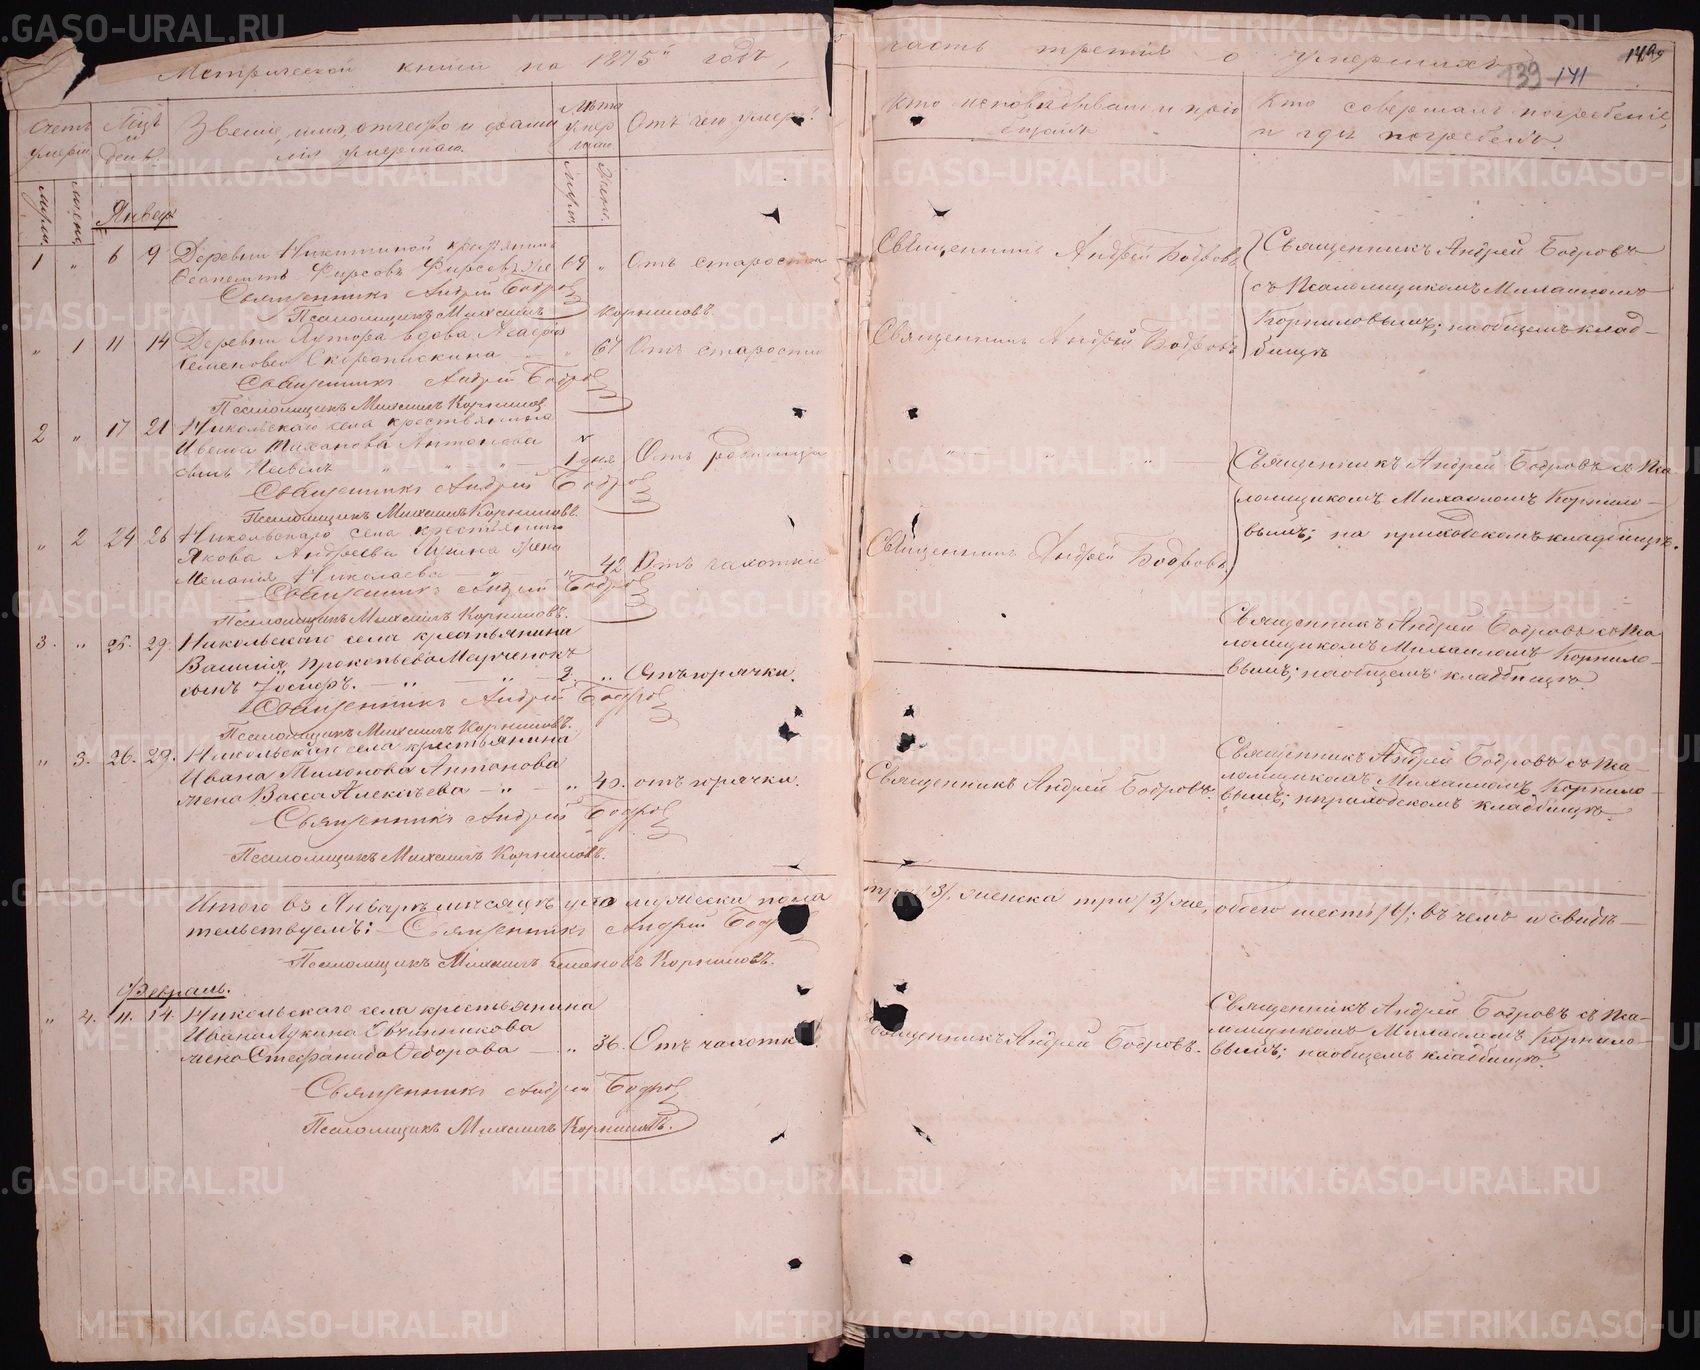 Метрической книги на 1875й годъ,
Счетъ умерш.
Мѣц. и день.
Званіе, имя, отчество и фамилія умершаго.
Лѣта умершаго
Отъ чего умеръ?
Муж.
Женс.
Январь
1 " 6 9 Деревни Никитиной крестьянинъ
Фирсовъ Фирсовъ 69 " Отъ старости
Священникъ Андрей Бобровъ
Псаломщикъ Михаилъ Корниловъ.
" 1 11 14 Деревни вдова Агафія
Семенова " 67 Отъ старости
Священникъ Андрей Бобровъ
Псаломщикъ Михаилъ Корниловъ
2 " 17 21 Никольскаго села крестьянина
Ивана Антонова
сынъ Павелъ " " " 1 дня Отъ родимца
Священникъ Андрей Бобровъ
Псаломщикъ Михаилъ Корниловъ.
" 2 24 26 Никольскаго села крестьянина
Якова Андреева жена
Меланія Николаева " " 42 Отъ чахотки
Священникъ Андрей Бобровъ
Псаломщикъ Михаилъ Корниловъ.
3. " 25. 29. Никольскаго села крестьянина
Василія Прокопьева
сынъ Іосифъ. " " 2. " Отъ горячки.
Священникъ Андрей Бобровъ
Псаломщикъ Михаилъ Корниловъ.
" 3. 26. 29. Никольскаго села крестьянина
Ивана Антонова
жена Васса Алексѣева " " 40. отъ горячки.
Священникъ Андрей Бобровъ
Псаломщикъ Михаилъ Корниловъ.
Итого въ Январѣ мѣсяцѣ мужеска пола
тельствуемъ: Священникъ Андрей Бобровъ
Псаломщикъ Михаилъ Корниловъ.
Февраль.
" 4. 11. 14. Никольскаго села крестьянина
Ивана Лукина Овчинникова
жена Стефанида Ѳедорова " 36. Отъ чахотки
Священникъ Андрей Бобровъ
Псаломщикъ Михаилъ Корниловъ.
часть третія о умершихъ
139 141
Кто исповѣдывалъ и пріобщалъ
Кто совершалъ погребеніе,
и гдѣ погребены.
Священникъ Андрей Бобровъ
Священникъ Андрей Бобровъ
съ Псаломщикомъ Михаиломъ
Корниловымъ; на общемъ клад-
бищѣ
Священникъ Андрей Бобровъ
" " "
Священникъ Андрей Бобровъ съ Пса-
ломщикомъ Михаиломъ Корнило-
вымъ; на приходскомъ кладбищѣ.
Священникъ Андрей Бобровъ
Священникъ Андрей Бобровъ съ Пса-
ломщикомъ Михаиломъ Корнило-
вымъ; на общемъ кладбищѣ.
Священникъ Андрей Бобровъ.
Священникъ Андрей Бобровъ съ Пса-
ломщикомъ Михаиломъ Корнило-
вымъ; приходскомъ кладбищѣ.
три /3/, женска три /3/ обоего шесть /6/; въ чемъ и свидѣ-
Священникъ Андрей Бобровъ.
Священникъ Андрей Бобровъ съ Пса-
ломщикомъ Михаиломъ Корнило-
вымъ; на общемъ кладбищѣ.
METRIKI.GASO-URAL.RU